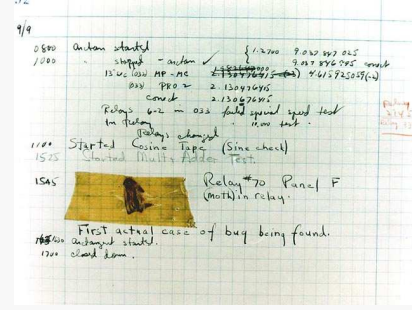 9/9
0800 antan started
1000 " stopped - antan ✓ { 1.2700 9.037 847 025
9.037 846 795 correct
13"uc (032) MP-MC 2.130476415 4.615925059(-2)
(033) PRO 2 2.130476415
correct 2.130676415
Relays 6-2 in 033 failed special speed test
in relay " 10,000 test.
Relays changed
1100 Started Cosine Tape (Sine check)
1525 Started Multy Adder Test.
1545 Relay #70 Panel F
(moth) in relay.
First actual case of bug being found.
1630 antangent started.
1700 closed down.